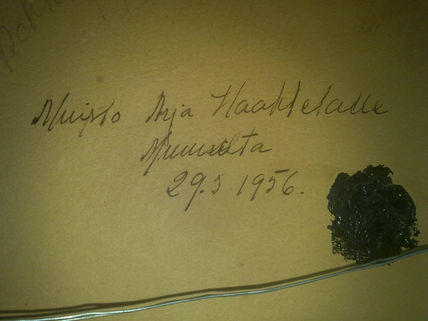 Muisto Arja Haahtelalle
Mummulta
29.5 1956.